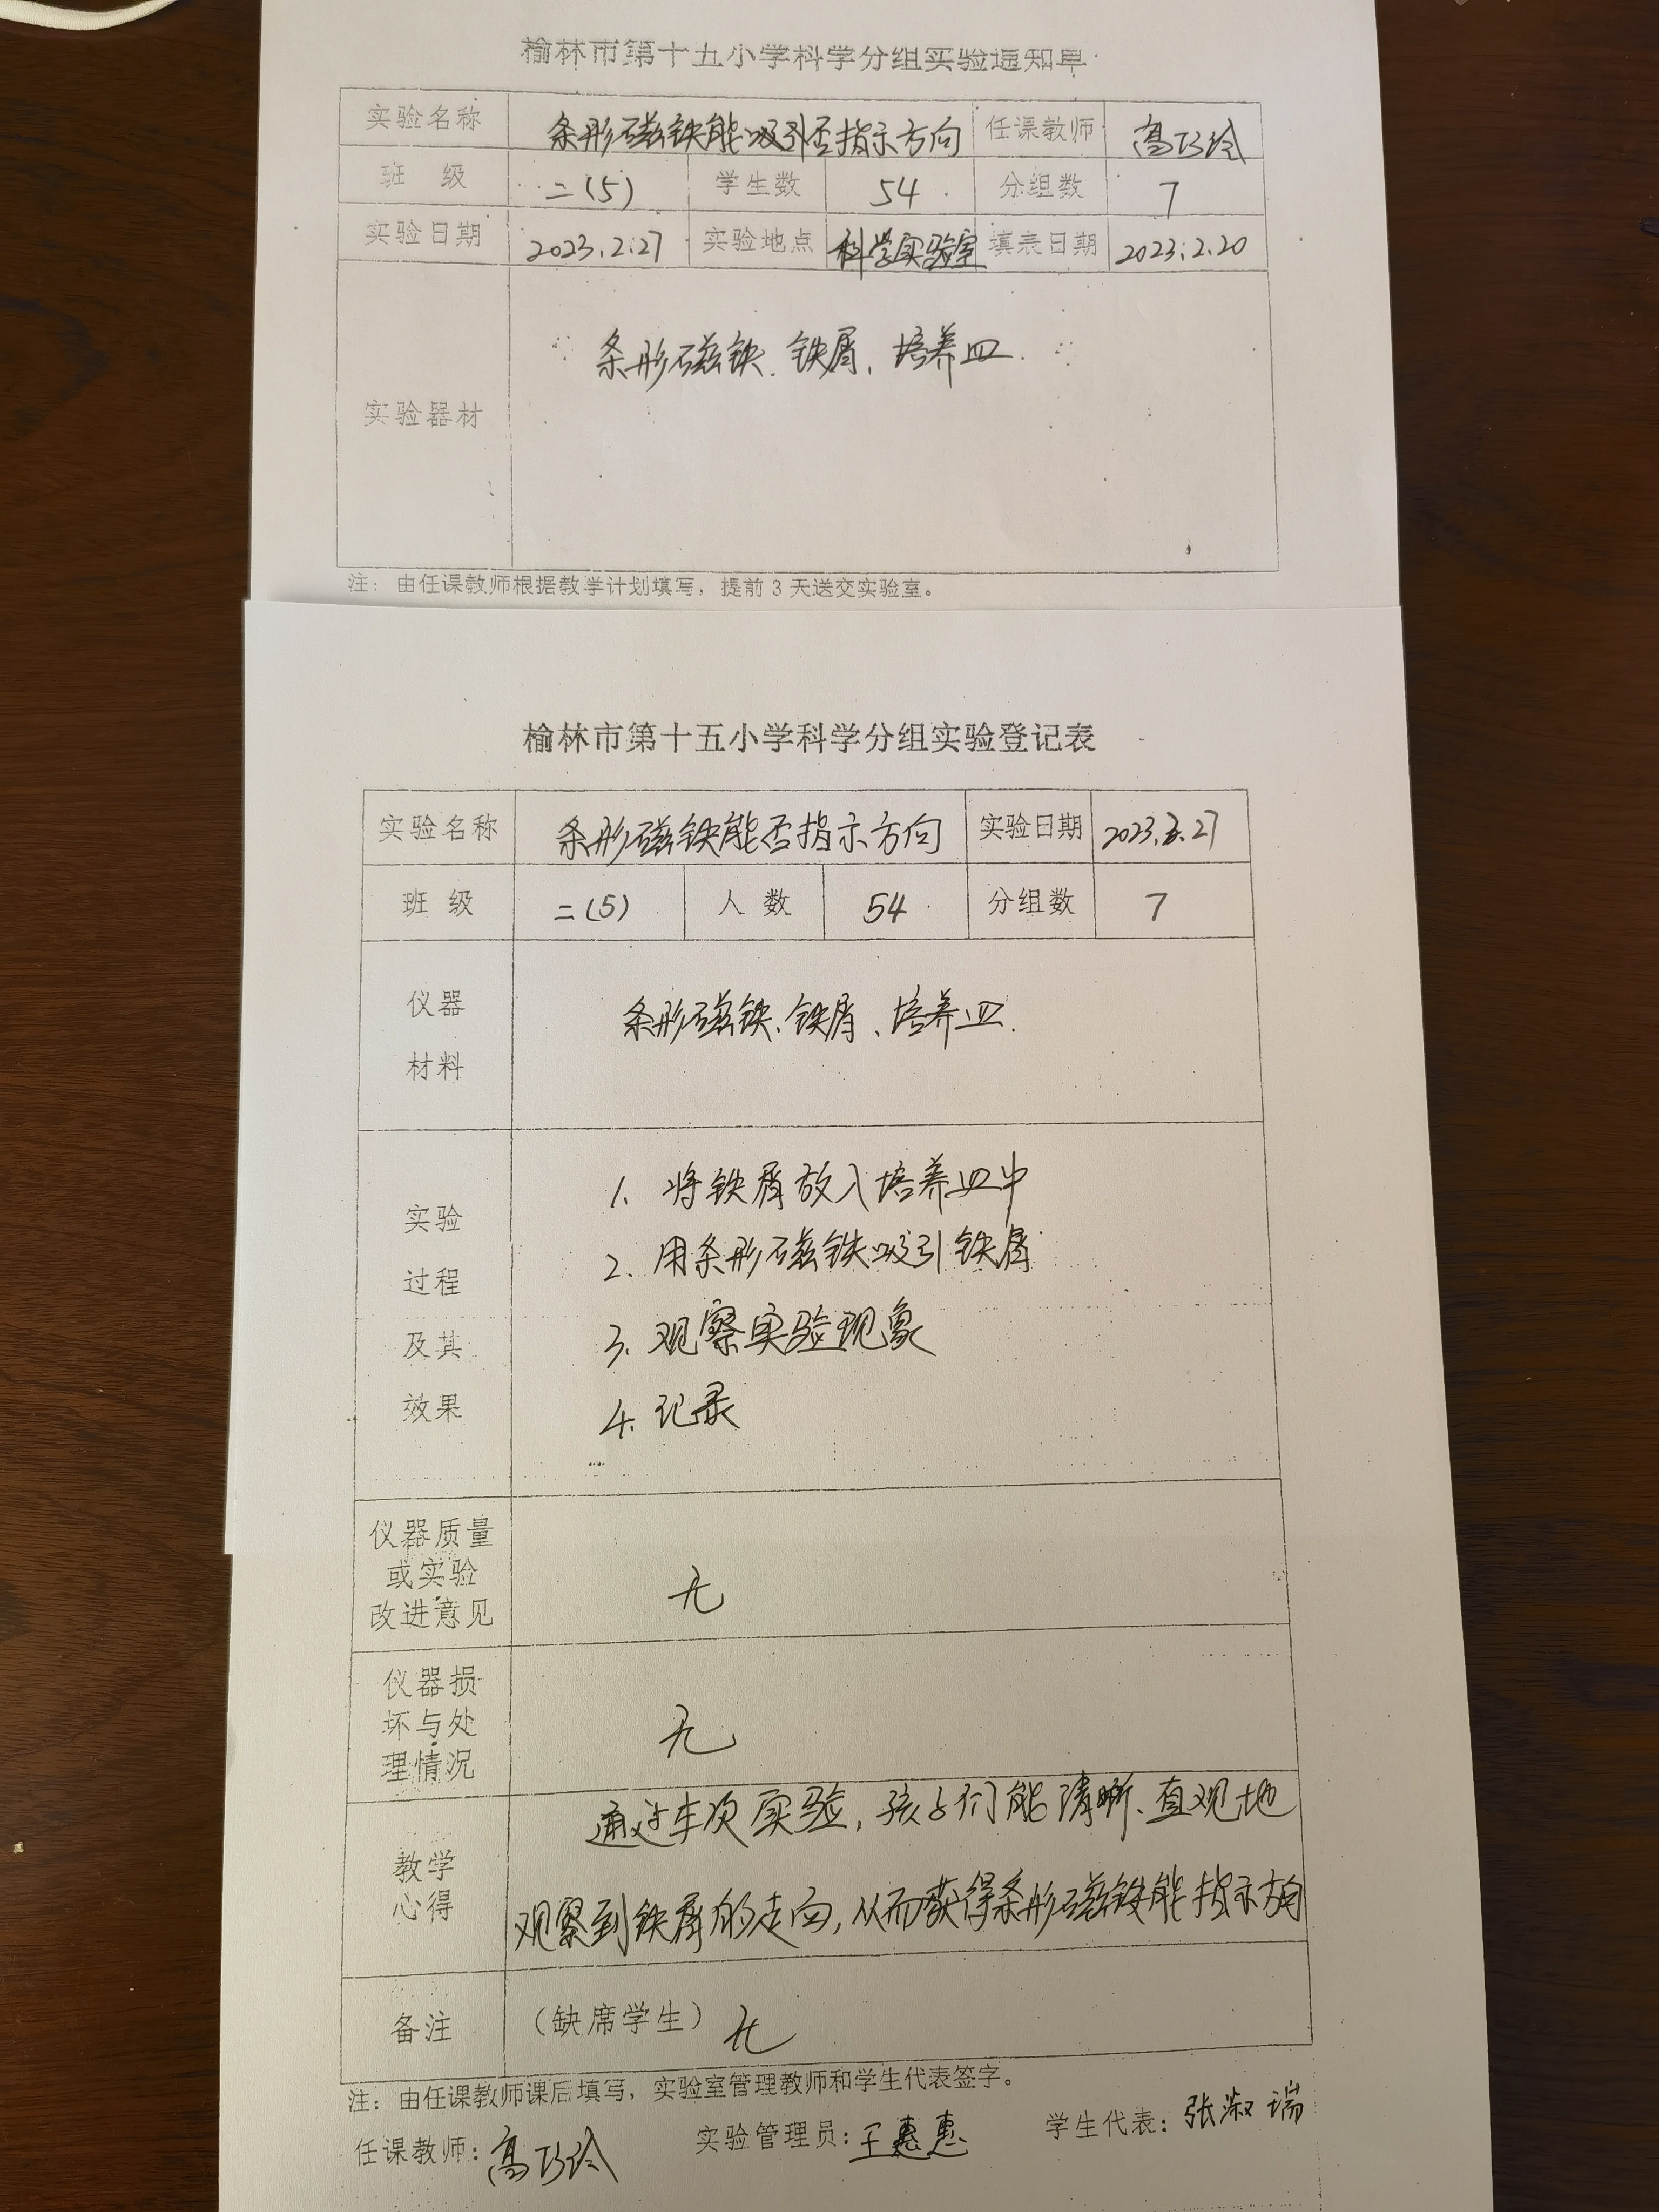 榆林市第十五小学科学分组实验通知单
实验名称 条形磁铁能吸引否指示方向 任课教师 高巧玲
班 级 二(5) 学生数 54 分组数 7
实验日期 2023.2.27 实验地点 科学实验室 填表日期 2023.2.20
实验器材 条形磁铁、铁屑、培养皿.
注：由任课教师根据教学计划填写，提前3天送交实验室。
榆林市第十五小学科学分组实验登记表
实验名称 条形磁铁能否指示方向 实验日期 2023.2.27
班 级 二(5) 人 数 54 分组数 7
仪器
材料
条形磁铁、铁屑、培养皿.
实验
过程
及其
效果
1. 将铁屑放入培养皿中
2. 用条形磁铁吸引铁屑
3. 观察实验现象
4. 记录
仪器质量
或实验
改进意见
无
仪器损
坏与处
理情况
无
教学
心得
通过本次实验，孩子们能清晰、直观地
观察到铁屑的走向，从而获得条形磁铁能指示方向
备注 （缺席学生） 无
注：由任课教师课后填写，实验室管理教师和学生代表签字。
任课教师：高巧玲 实验管理员：王惠惠 学生代表：张淑瑞